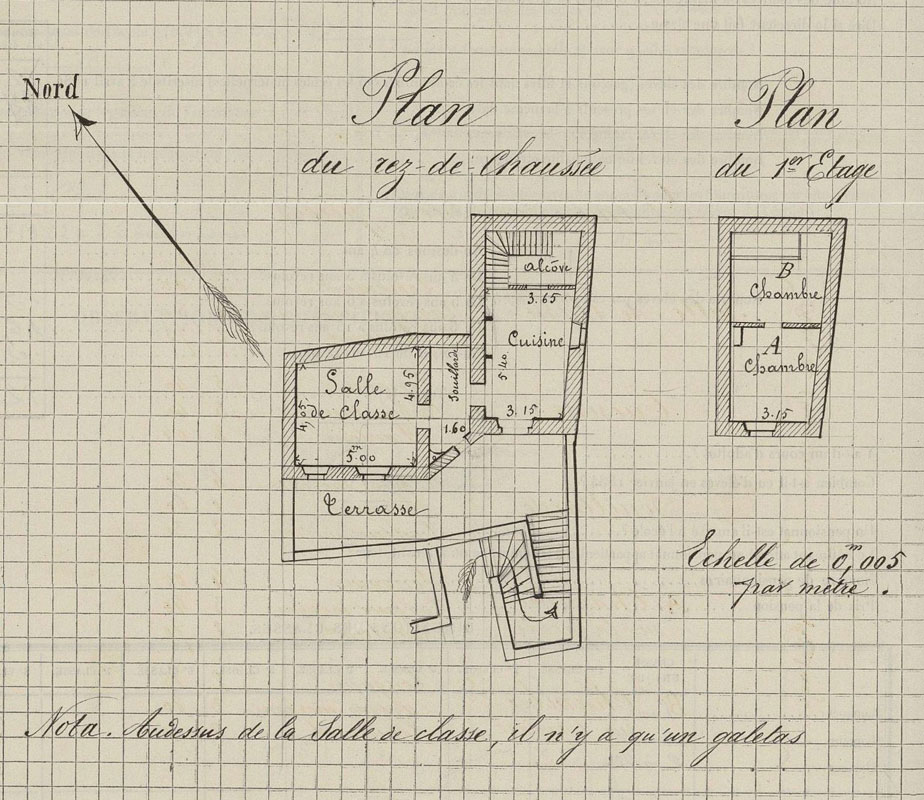 Nord
Plan
du rez-de-Chaussée
Plan
du 1er Etage
alcôve
3.65
Cuisine
5.40
3.15
Souillarde
1.60
Salle
de classe
4.95
4,05
5m00
Terrasse
B
Chambre
A
Chambre
3.15
Echelle de 0m,005
par mètre.
Nota. Audessus de la Salle de classe, il n'y a qu'un galetas